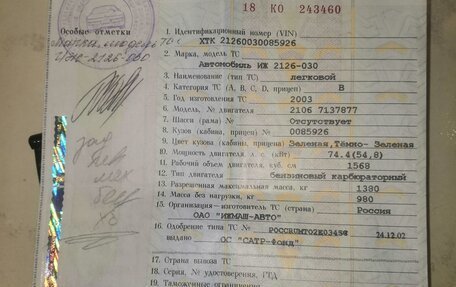 18 КО 243460
Особые отметки
1. Идентификационный номер (VIN)
ХТК 21260030085926
2. Марка, модель ТС
Автомобиль ИЖ 2126-030
3. Наименование (тип ТС) легковой
4. Категория ТС (А, В, С, D, прицеп) В
5. Год изготовления ТС 2003
6. Модель, № двигателя 2106 7137877
7. Шасси (рама) № Отсутствует
8. Кузов (кабина, прицеп) № 0085926
9. Цвет кузова (кабины, прицепа) Зеленая,Тёмно- Зеленая
10. Мощность двигателя, л. с. (кВт) 74.4(54,8)
11. Рабочий объем двигателя, куб. см 1568
12. Тип двигателя бензиновый карбюраторный
13. Разрешенная максимальная масса, кг 1380
14. Масса без нагрузки, кг 980
15. Организация—изготовитель ТС (страна) Россия
ОАО "ИЖМАШ-АВТО"
16. Одобрение типа ТС №
24.12.02
выдано ОС "САТР-Фонд"
17. Страна вывоза ТС
18. Серия, № удостоверения, ГТД
19. Таможенные ограничения